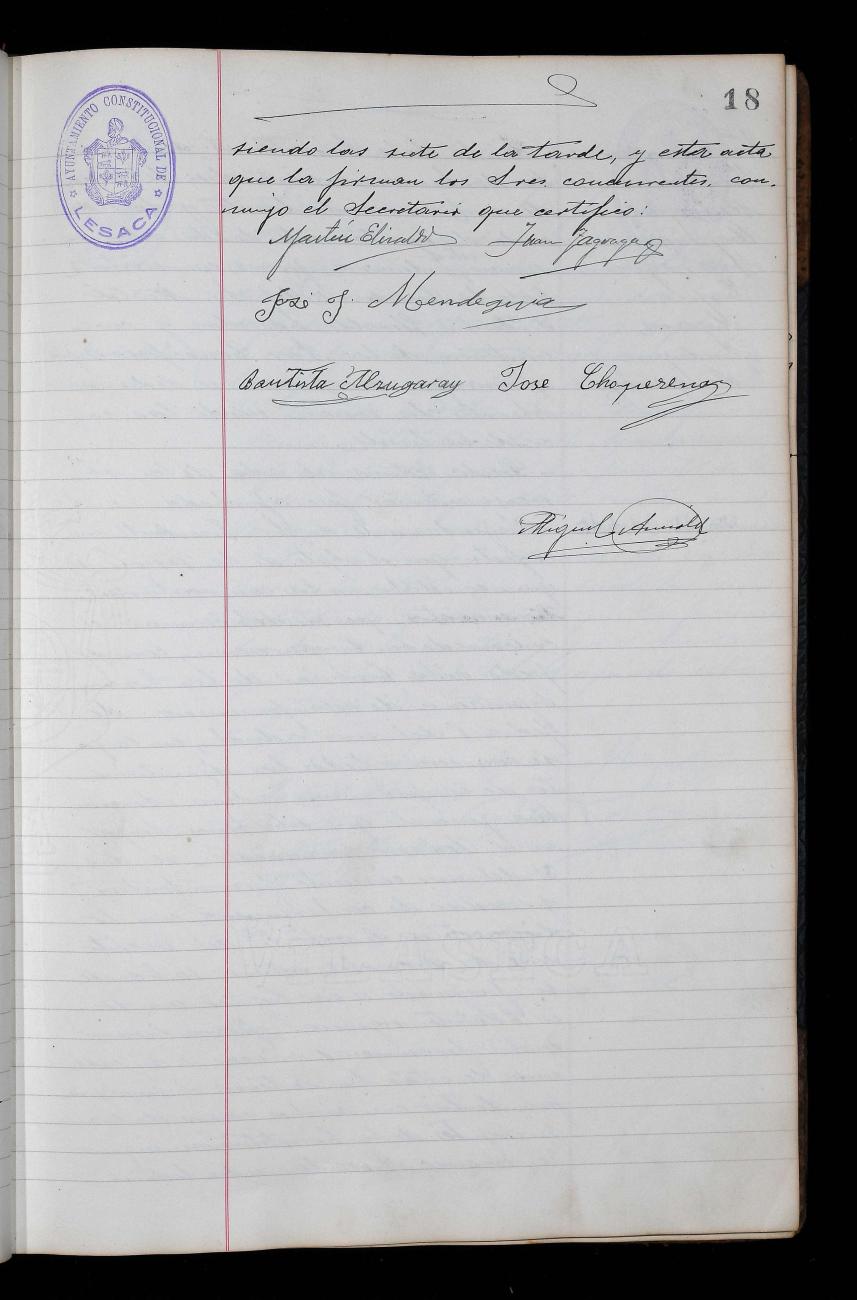 18
AYUNTAMIENTO CONSTITUCIONAL DE
LESACA
siendo las siete de la tarde, y esta acta
que la firman los Sres concurrentes, con-
migo el Secretario que certifico:
Martín Elizalde Juan
José J. Mendeguia
Bautista Alzugaray Jose Choperena
Miguel